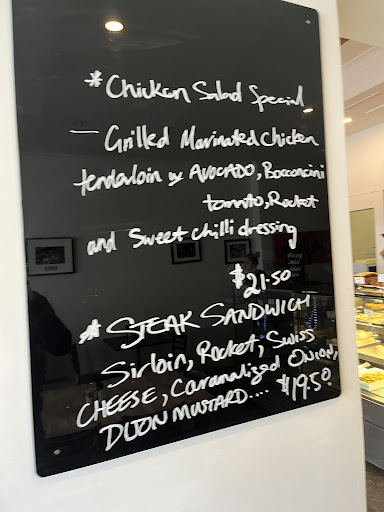 * Chicken Salad Special
- Grilled Marinated Chicken
tenderloin & AVOCADO, Bocconcini
tomato, Rocket
and Sweet chilli dressing
$21.50
* STEAK SANDWICH
Sirloin, Rocket, Swiss
CHEESE, Caramalized ONION,
DIJON MUSTARD.... $19.50